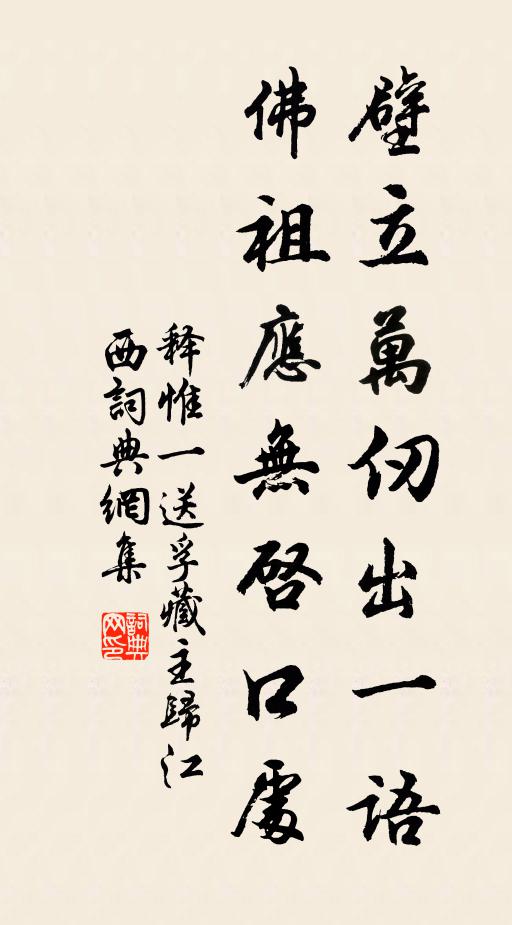 壁立萬仞出一語
佛祖應無啓口處
释惟一送孚藏主歸江
西詞典網集
詞典
网印